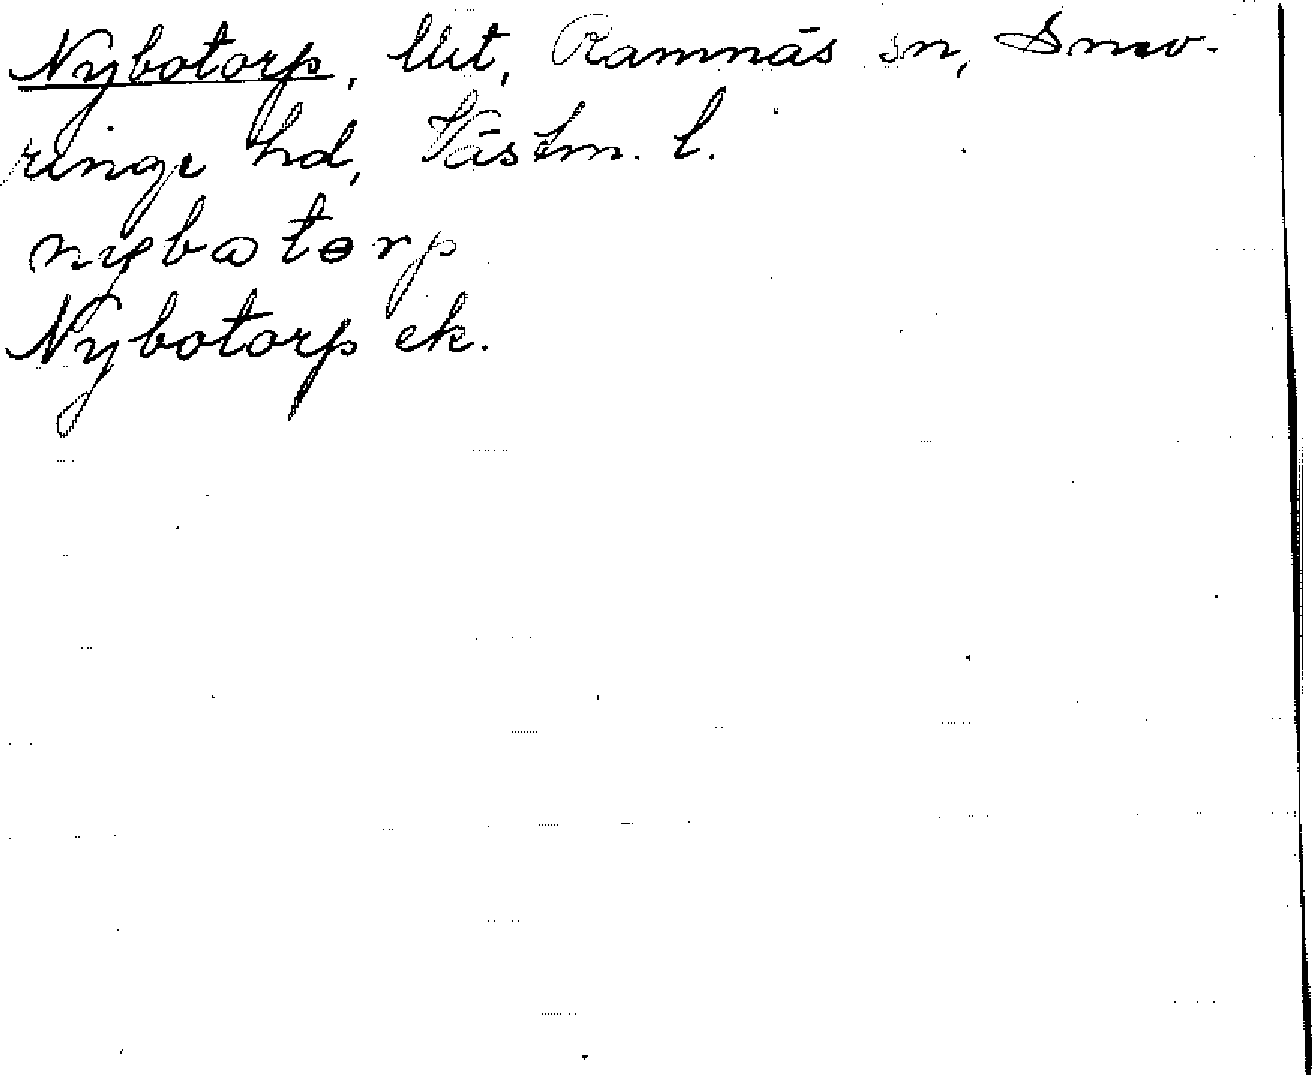 Nybotorp, Ramnäs sn, Snev-
ringe hd, Västm. l.
nybɷtɵrp
Nybotorp ek.